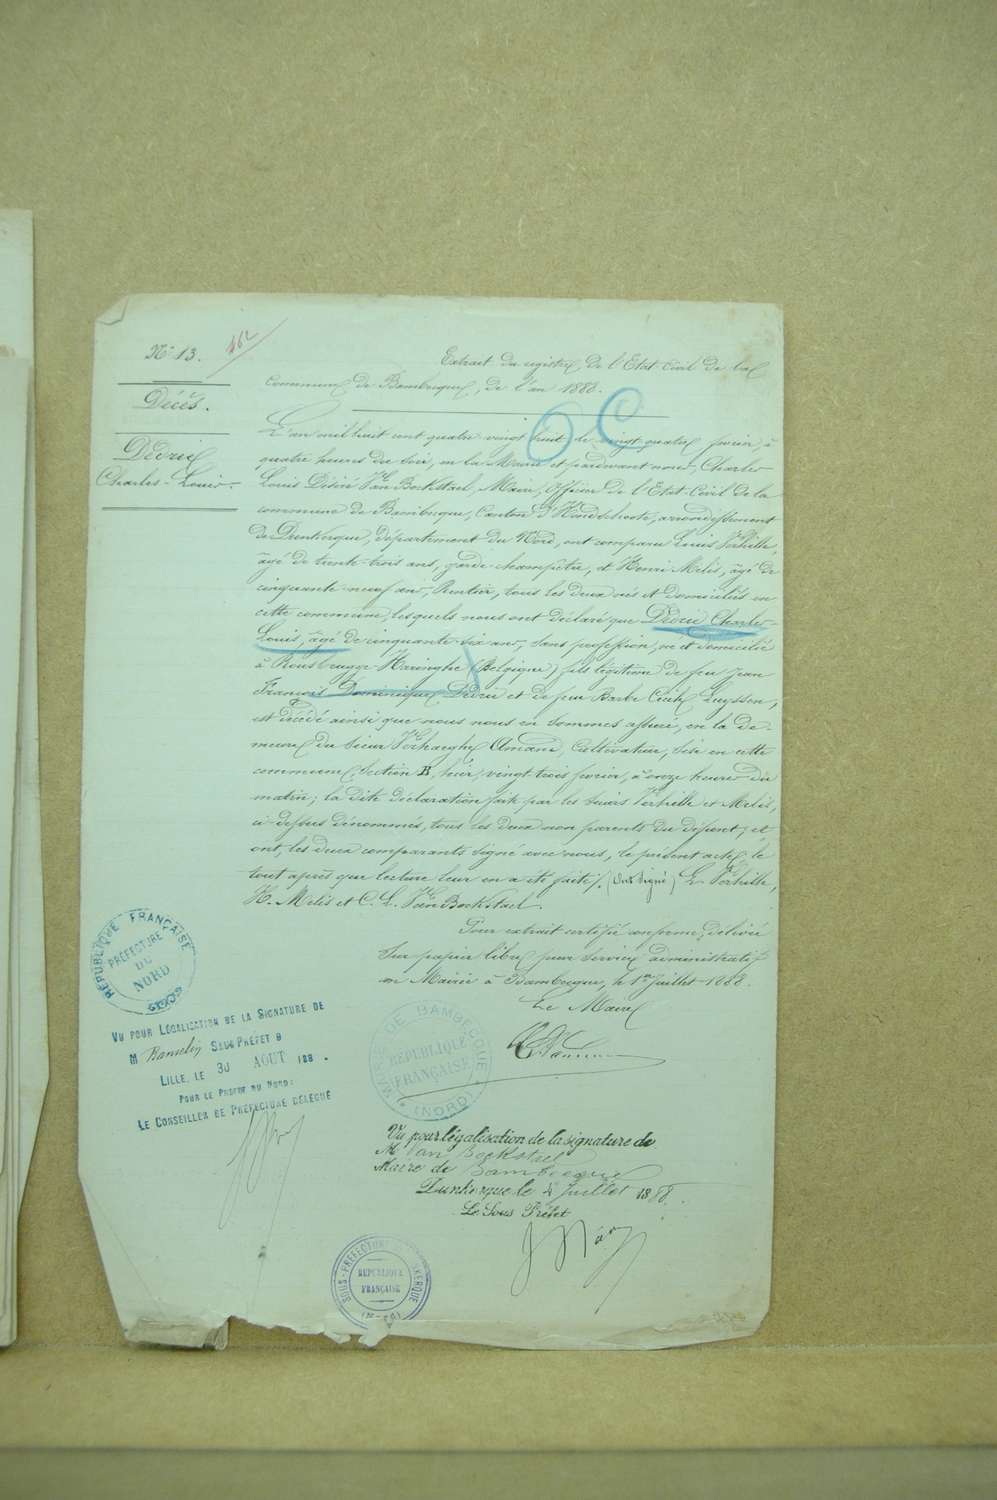 N° 13.
162
Décès.
Dédrie
Charles-Louis.
Extrait du registre de l'Etat-Civil de la
Commune de Bambecque, de l'an 1888.
L'an mil huit cent quatre vingt huit le vingt quatre février, à
quatre heures du soir, en la Mairie et pardevant nous, Charles-
Louis Désiré Van Bockstael, Maire, Officier de l'Etat-Civil de la
commune de Bambecque, Canton d'Hondschoote, arrondissement
de Dunkerque, département du Nord, ont comparu Louis Verhille,
âgé de trente-trois ans, garde-champêtre, et Henri Melis, âgé de
cinquante-neuf ans, Rentier, tous les deux nés et domiciliés en
cette commune, lesquels nous ont déclaré que Dédrie Charles-
Louis, âgé de cinquante-six ans, sans profession, né et domicilié
à Rousbrugge-Haringhe (Belgique) fils légitime de feu Jean
François Dominique Dédrie et de feu Barbe Cécile Luyssen,
est décédé ainsi que nous nous en sommes assuré, en la de-
meure du sieur Verhaeghe Amand, Cultivateur, sise en cette
commune, section B, hier, vingt-trois février, à onze heures du
matin; la dite déclaration faite par les sieurs Verhille et Melis,
ci-dessus dénommés, tous les deux non parents du défunt, et
ont, les deux comparants signé avec nous, le présent acte, le
tout après que lecture leur en a été faite. (ont signé) L. Verhille,
H. Melis et C. L. Van Bockstael.
Pour extrait certifié conforme, délivré
sur papier libre pour service administratif
en Mairie à Bambecque, le 1er Juillet 1888.
Le Maire
RÉPUBLIQUE FRANÇAISE
PRÉFECTURE
DU
NORD
VU POUR LÉGALISATION DE LA SIGNATURE DE
M SOUS-PRÉFET D
LILLE, LE 30 AOUT 188.
POUR LE PRÉFET DU NORD:
LE CONSEILLER DE PRÉFECTURE DÉLÉGUÉ
MAIRIE DE BAMBECQUE
RÉPUBLIQUE
FRANÇAISE
(NORD)
Vu pour légalisation de la signature de
M Van Bockstael
Maire de Bambecque
Dunkerque le 4 Juillet 1888.
Le Sous Préfet
SOUS-PRÉFECTURE DUNKERQUE
RÉPUBLIQUE
FRANÇAISE
(NORD)